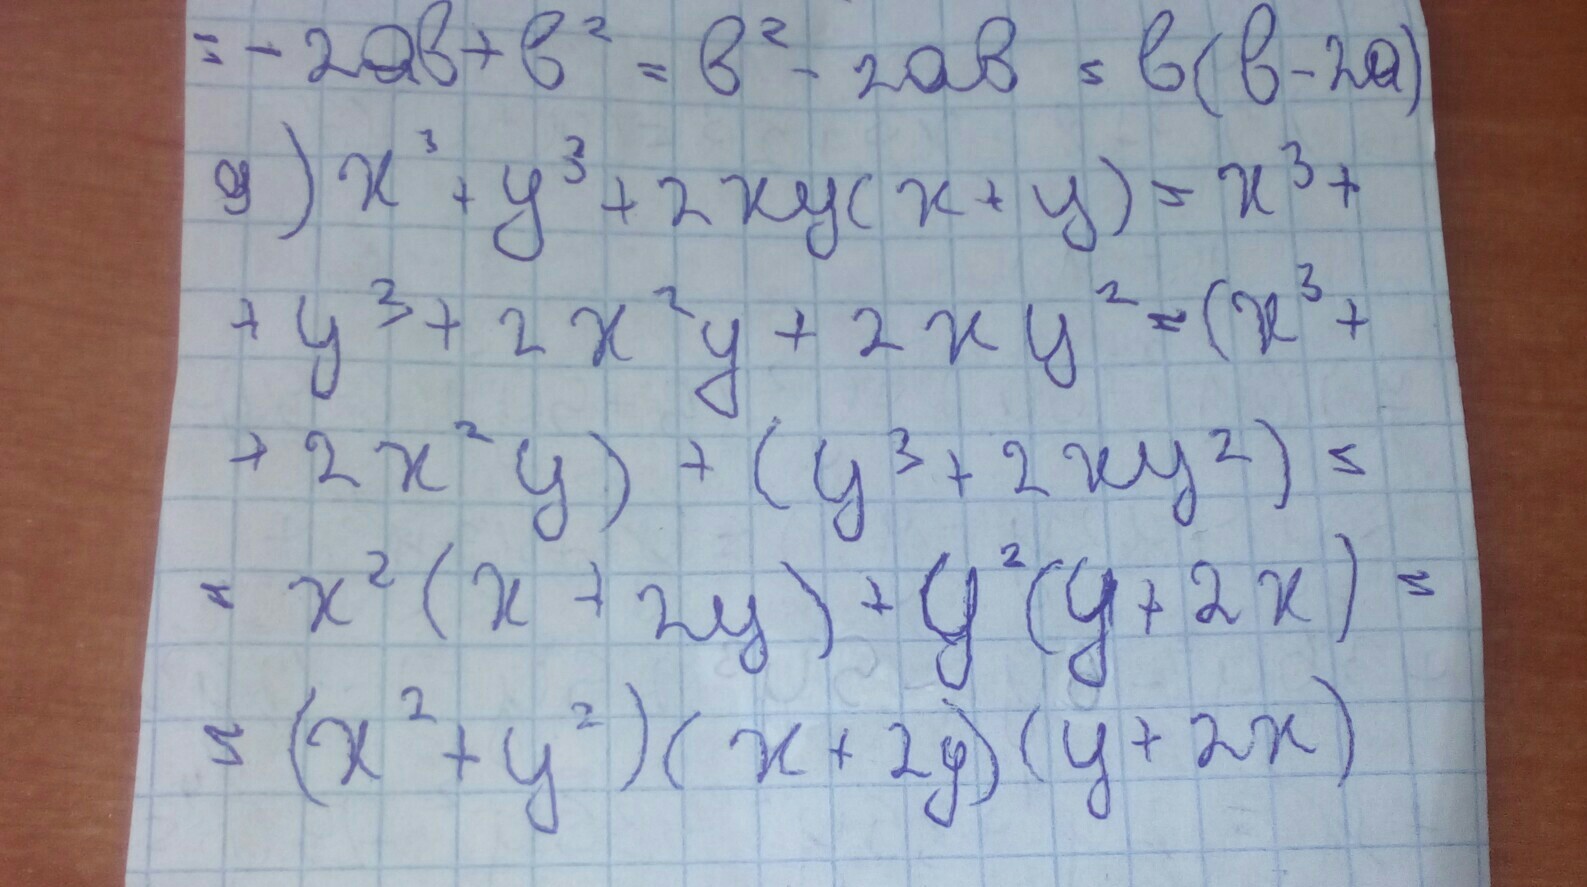 = - 2ab + b² = b² - 2ab = b(b - 2a)
д) x³ + y³ + 2xy(x + y) = x³ +
+ y³ + 2x²y + 2xy² = (x³ +
+ 2x²y) + (y³ + 2xy²) =
= x²(x + 2y) + y²(y + 2x) =
= (x² + y²)(x + 2y)(y + 2x)